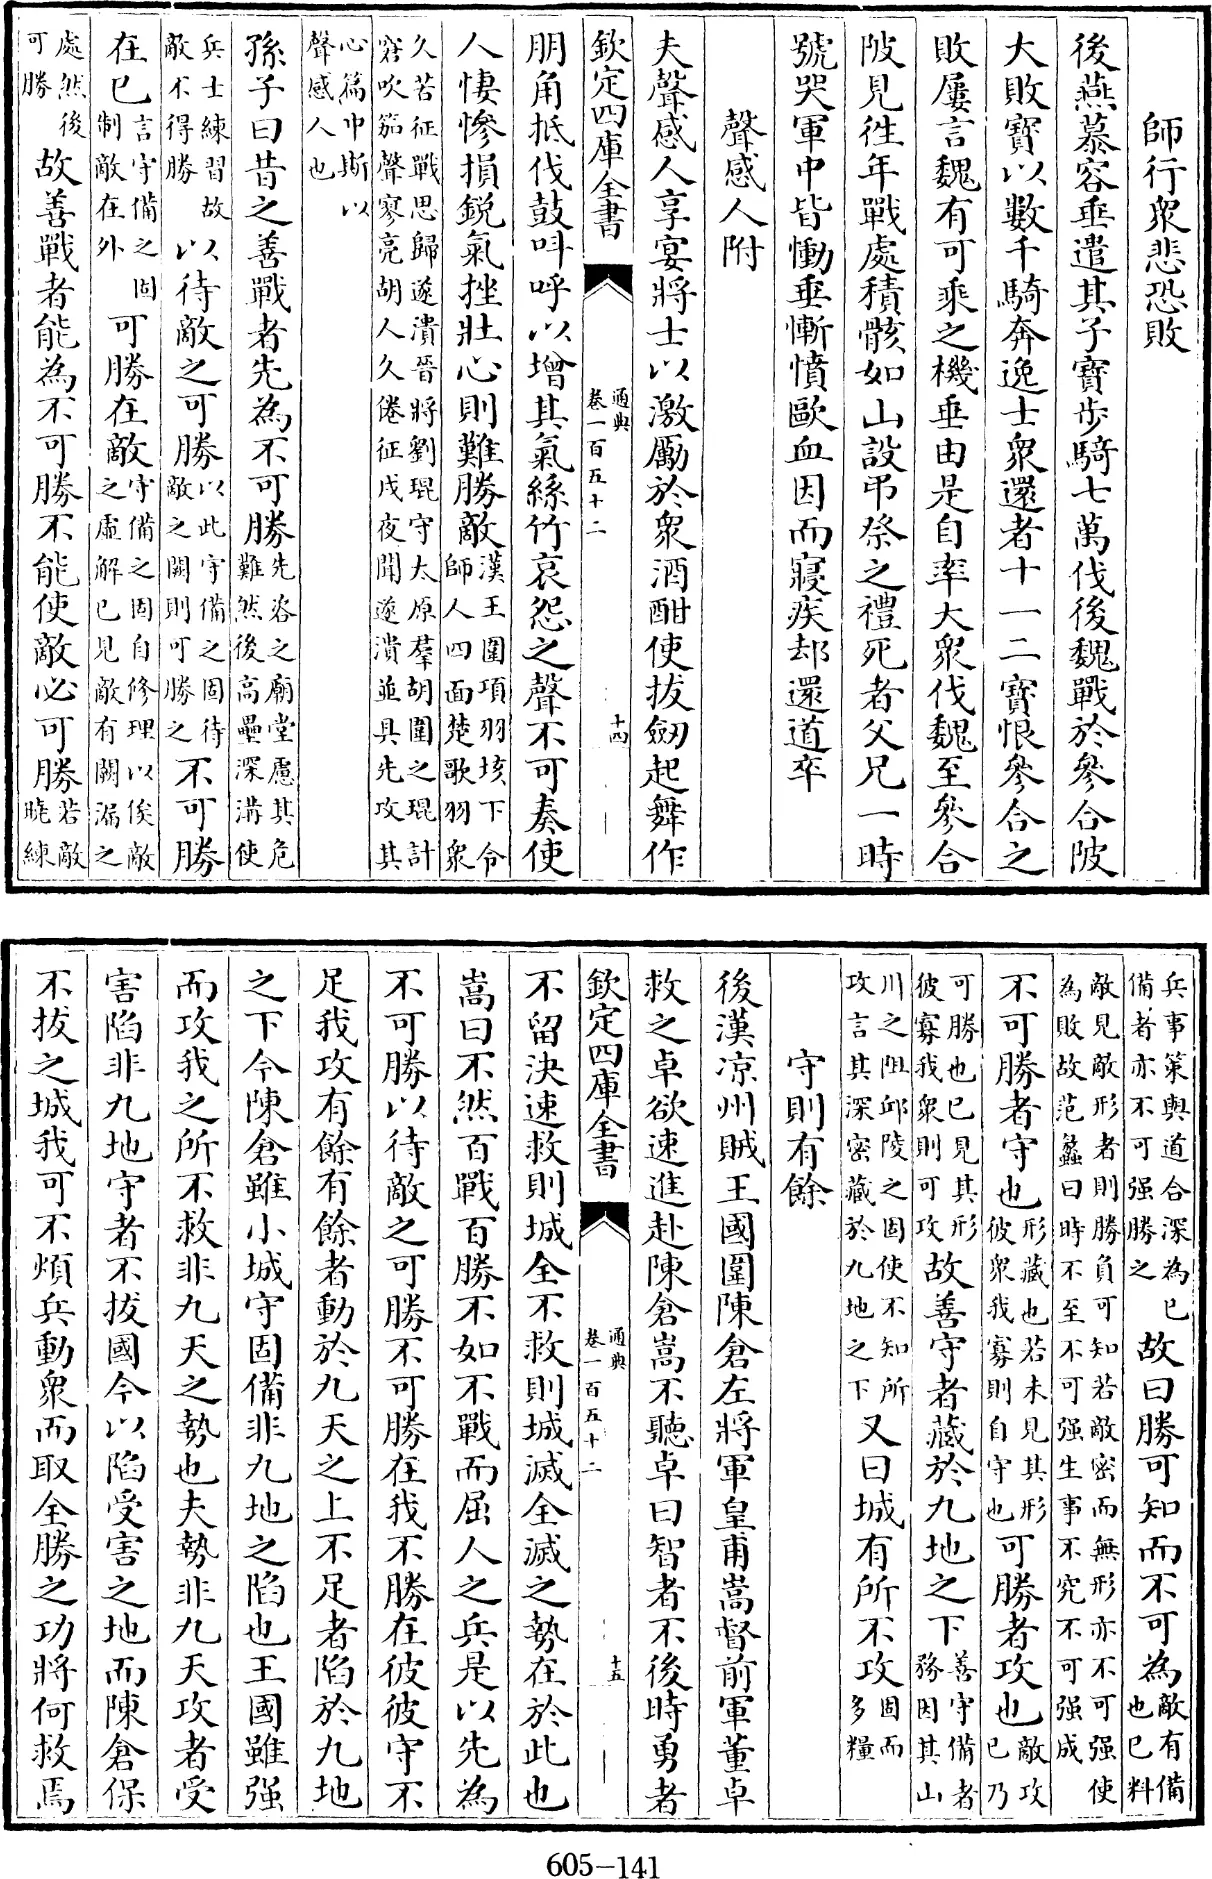 師行衆悲恐敗
後燕慕容垂遣其子寳步騎七萬伐後魏戰於參合陂
大敗寳以數千騎奔逸士衆還者十一二寳恨參合之
敗屢言魏有可乘之機垂由是自率大衆伐魏至參合
陂見徃年戰處積骸如山設弔祭之禮死者父兄一時
號哭軍中皆慟垂慚憤歐血因而寢疾却還道卒
聲感人附
夫聲感人享宴將士以激勵於衆酒酣使拔劒起舞作
欽定四庫全書 通典 卷一百五十二 十四
朋角抵伐鼓呌呼以增其氣絲竹哀怨之聲不可奏使
人悽慘損鋭氣挫壯心則難勝敵漢王圍項羽垓下令師人四面楚歌羽衆
久苦征戰思歸遂潰晉將劉琨守太原羣胡圍之琨計窘吹笳聲寥亮胡人久倦征戍夜聞遂潰並具先攻其
心篇中斯以聲感人也
孫子曰昔之善戰者先為不可勝先咨之廟堂慮其危難然後高壘深溝使
兵士練習故敵不得勝以待敵之可勝以此守備之固待敵之闕則可勝之不可勝
在已言守備之固制敵在外可勝在敵守備之固自修理以俟敵之虛懈已見敵有闕漏之
處然後可勝故善戰者能為不可勝不能使敵必可勝若敵曉練
兵事策與道合深為已備者亦不可强勝之故曰勝可知而不可為敵有備也已料
敵見敵形者則勝負可知若敵密而無形亦不可强使為敗故范蠡曰時不至不可强生事不究不可强成
不可勝者守也形藏也若未見其形彼衆我寡則自守也可勝者攻也敵攻已乃
可勝也已見其形彼寡我衆則可攻故善守者藏於九地之下善守備者務因其山
川之阻邱陵之固使不知所攻言其深密藏於九地之下又曰城有所不攻固而多糧
守則有餘
後漢凉州賊王國圍陳倉左將軍皇甫嵩督前軍董卓
救之卓欲速進赴陳倉嵩不聽卓曰智者不後時勇者
欽定四庫全書 通典 卷一百五十二 十五
不留決速救則城全不救則城滅全滅之勢在於此也
嵩曰不然百戰百勝不如不戰而屈人之兵是以先為
不可勝以待敵之可勝不可勝在我不勝在彼彼守不
足我攻有餘有餘者動於九天之上不足者陷於九地
之下今陳倉雖小城守固備非九地之陷也王國雖强
而攻我之所不救非九天之勢也夫勢非九天攻者受
害陷非九地守者不拔國今以陷受害之地而陳倉保
不拔之城我可不煩兵動衆而取全勝之功將何救焉
605-141